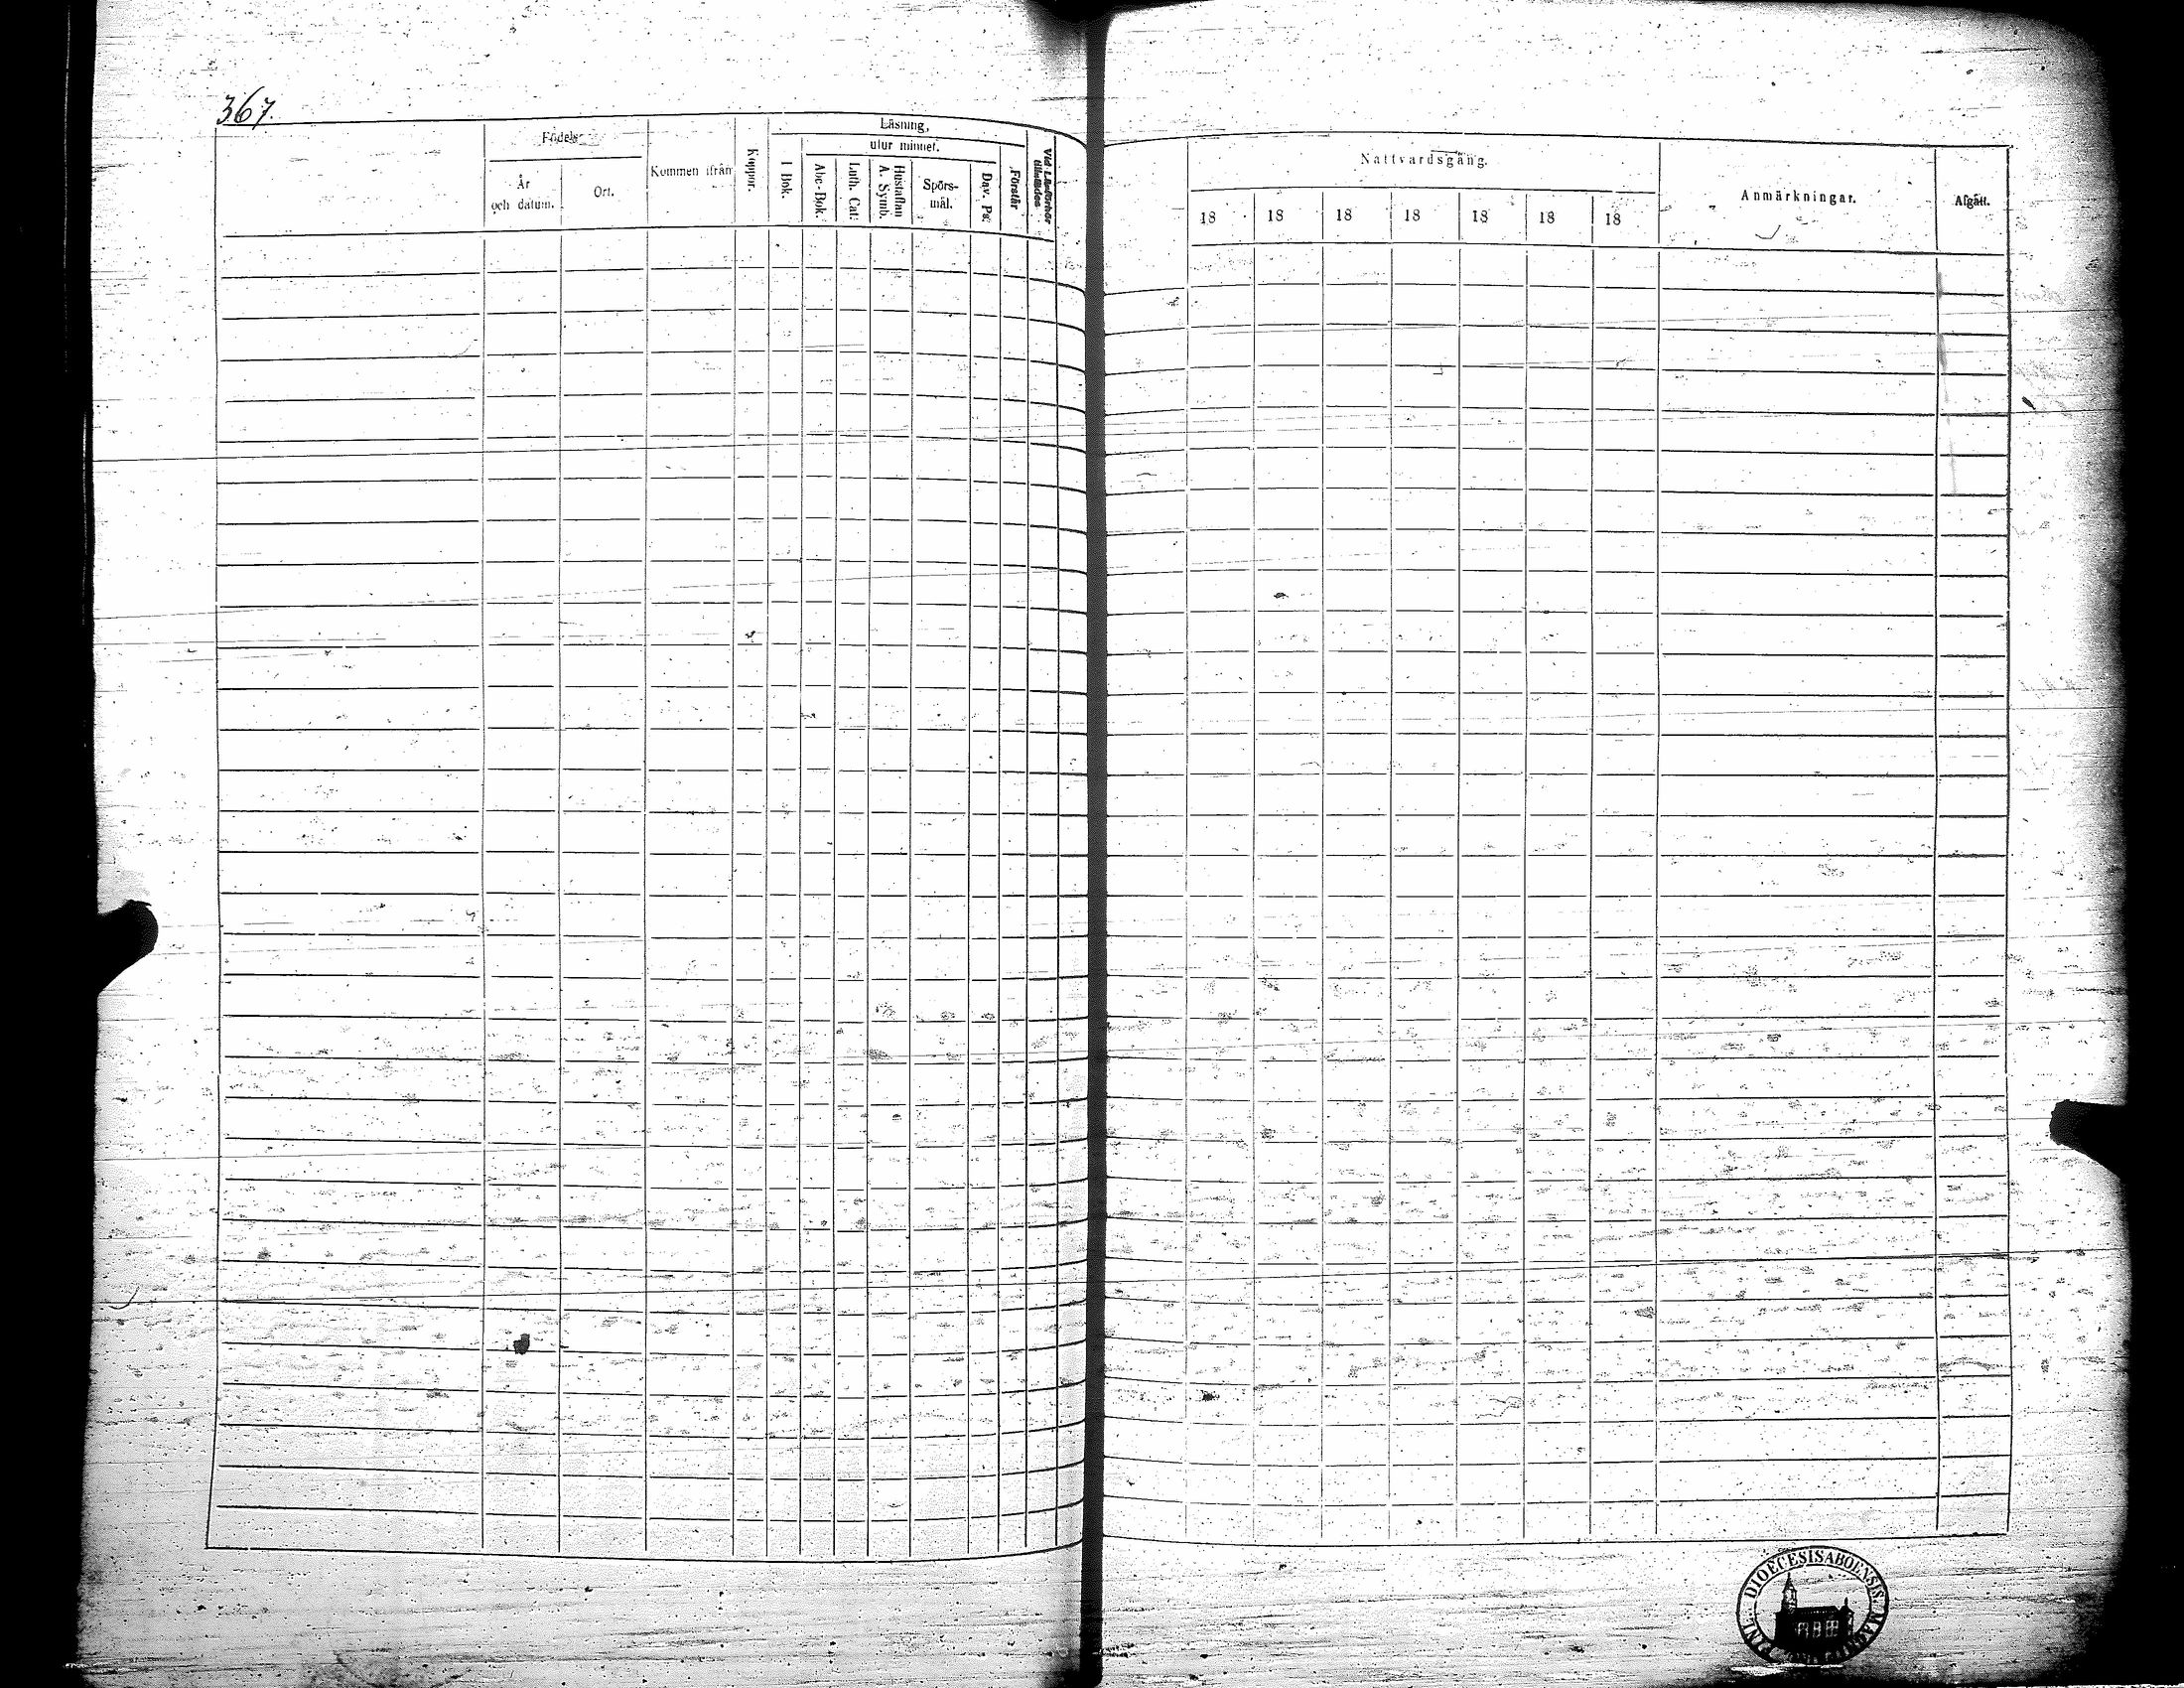 367.
Födels-
År
och datum.
Ort.
Kommen ifrån
Koppor.
Läsning,
utur minnet.
I Bok.
Abc-Bok.
Luth. Cat.
Hustaflan
A. Symb.
Spörs-
mål.
Dav. Ps.
Förstår
Vid Läsförhör
tillstädes
Nattvardsgång.
18 18 18 18 18 18 18
Anmärkningar.
Afgått.
DIOECESIS ABOENSIS MAGNI